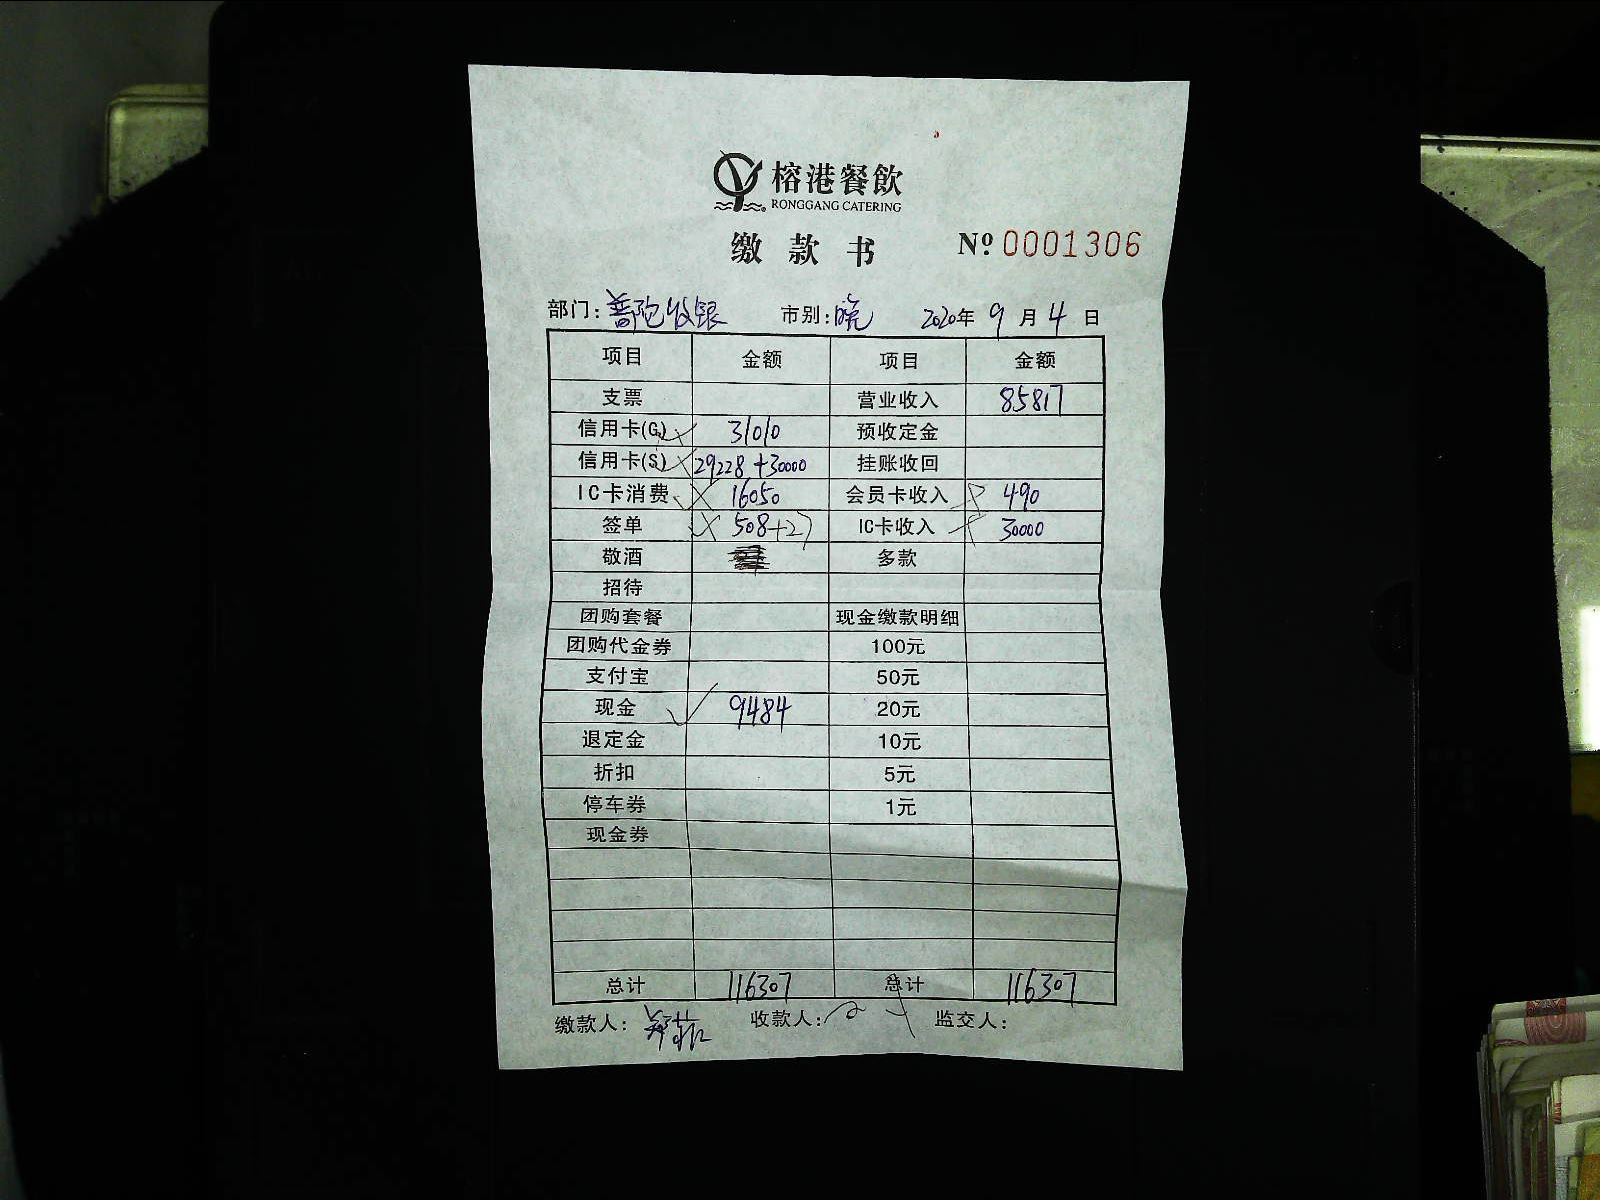 榕港餐飲
RONGGANG CATERING
缴款书 Nº 0001306
部门: 普陀收银 市别: 晚 2020年 9月 4日
项目 金额 项目 金额
支票 营业收入 85817
信用卡(G) 31010 预收定金
信用卡(S) 29228+30000 挂账收回
IC卡消费 16050 会员卡收入 490
签单 508+27 IC卡收入 30000
敬酒 多款
招待
团购套餐 现金缴款明细
团购代金券 100元
支付宝 50元
现金 9484 20元
退定金 10元
折扣 5元
停车券 1元
现金券
总计 116307 总计 116307
缴款人: 收款人: 监交人: